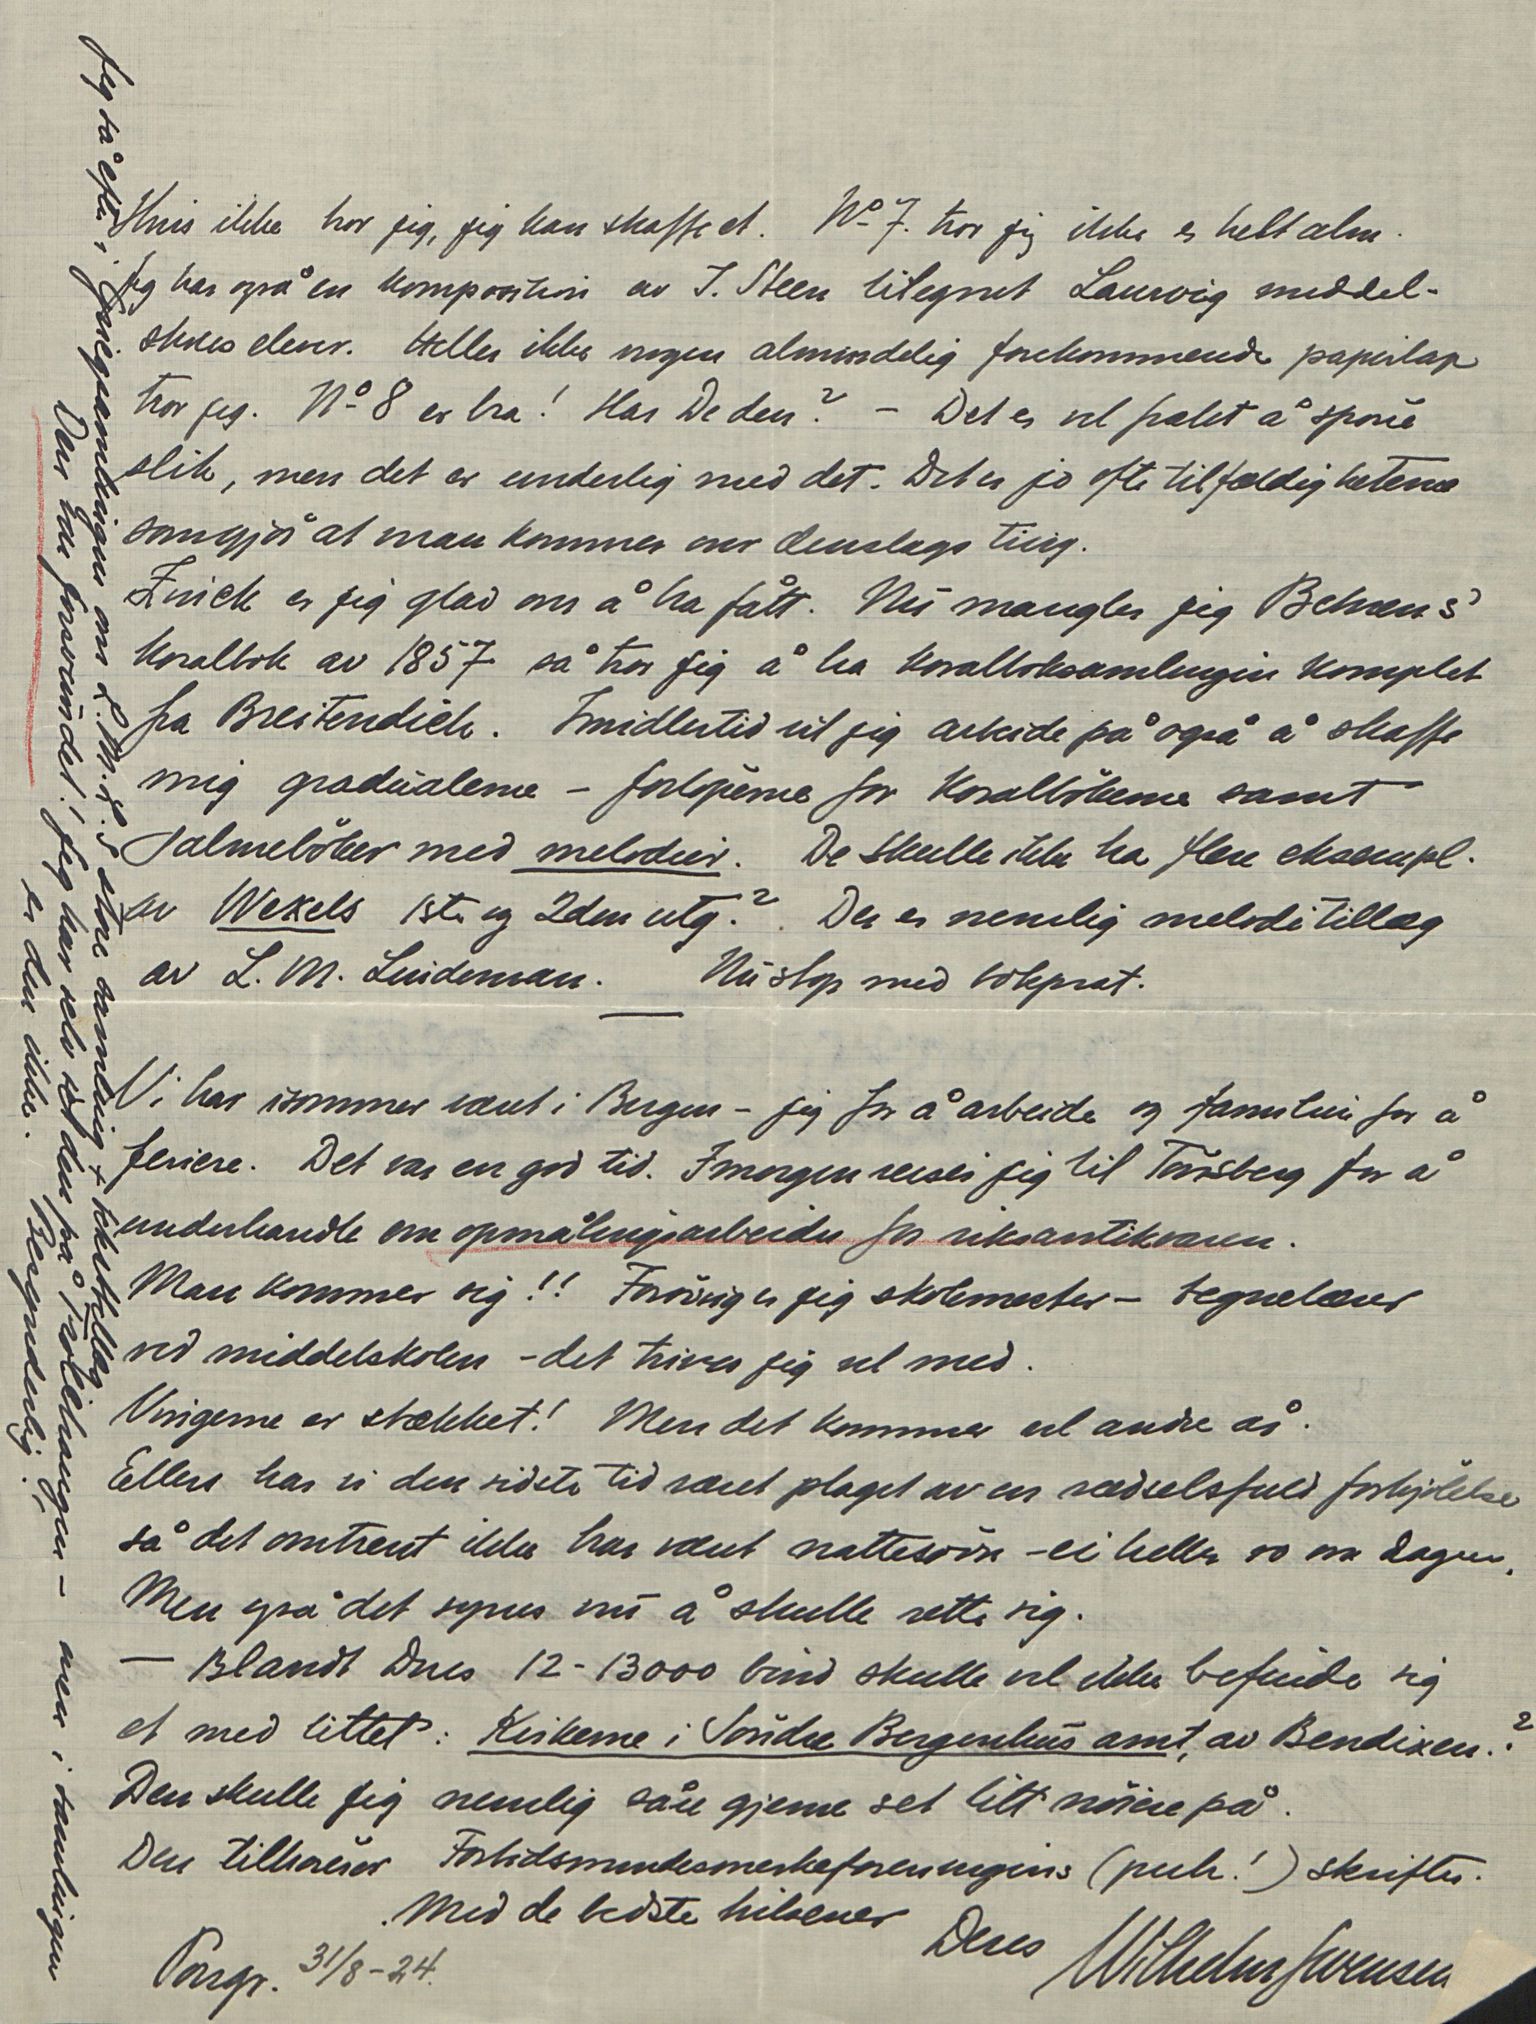 Hvis ikke tror jeg, jeg kan skaffe et. No 7. tror jeg ikke er helt alm.
Jeg har også en komposition av J. Steen tilegnet Laurvig middel-
skoles elever. Heller ikke nogen almindelig forekommende papirlap
tror jeg. No 8 er bra! Har De den? – Det er vel fælt å spørre
slik, men det er underlig med det. Det er jo ofte tilfældighetene
som gjør at man kommer over denslags ting.
Zinck er jeg glad om å ha fått. Nu mangler jeg Behrens'
Koralbok av 1857 så tror jeg å ha koralboksamlingen komplet
fra Breitendich. Imidlertid vil jeg arbeide på også å skaffe
mig gradualerne – forløperne for Koralbøkerne samt
Salmebøker med melodier. De skulle ikke ha flere eksempl.
av Wexels 1ste og 2den utg.? Der er nemlig melodi tillæg
av L. M. Lindeman. Nu stop med bokprat.
Vi har isommer været i Bergen – jeg for å arbeide og familien for å
feriere. Det var en god tid. Imorgen reiser jeg til Tønsberg for å
underhandle om opmålingsarbeider for riksantikvaren.
Man kommer sig!! Forøvrig er jeg skolemester – tegnelærer
ved middelskolen – det trives jeg vel med.
Vingerne er stækket! Men det kommer vel andre år.
Ellers har vi den sidste tid været plaget av en rædselsfuld forkjølelse
så det omtrent ikke har været nattesøvn – ei heller ro om dagen.
Men også det synes nu å skulle rette sig.
– Blandt Deres 12 – 13000 bind skulle vel ikke befinde sig
et med tittel: Kirkerne i Søndre Bergenhus amt, av Bendixen.?
Den skulle jeg nemlig såre gjerne set litt nøiere på.
Den tilhører Fortidsmindesmerkeforeningens (puh!) skrifter.
Med de bedste hilsener
Deres Wilhelm Swensen
Porsgr. 31/8 – 24.
Jeg så efter i Griegsamlingen om L. M. L.s store samling + tillæg
Den var forsvundet! Jeg har selv set den på Troldhaugen – men i samlingen
er den ikke. Besynderlig!